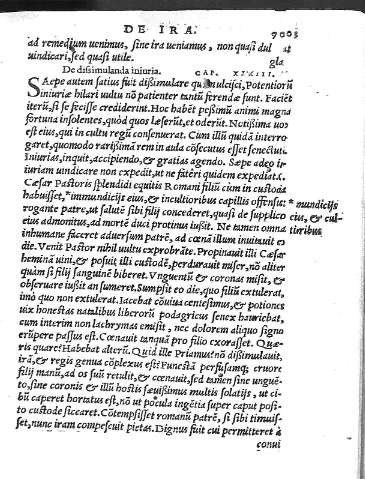 DE IRA.
ad remedium uenimus, sine ira ueniamus, non quasi dul at
uindicari, sed quasi utile. gla
De dissimulanda iniuria. CAP. XXXIII.
SAepe autem satius fuit dissimulare quā ulcisci, Potentiorū
iniuriæ hilari uultu nō patienter tantū ferendæ sunt. Faciēt
iterū, si se fecisse crediderint. Hoc habēt pessimū animi magna
fortuna insolentes, quòd quos læserūt, et oderūt. Notissima uox
est eius, qui in cultu regū consenuerat. Cum illū quidā interro
garet, quomodo rarissimā rem in aula cōsecutus esset senectutē.
Iniurias, inquit, accipiendo, & gratias agendo. Sæpe adeo in
iuriam uindicare non expedit, ut ne fateri quidem expediat.
Cæsar Pastoris splendidi equitis Romani filiū cùm in custodia
habuisset, *immundicijs eius, & incultioribus capillis offensus: *mundicijs
rogante patre, ut salutē sibi filij concederet, quasi de supplicio eius, & cul-
eius admonitus, ad mortē duci protinus iußit. Ne tamen omnia tioribus
inhumane faceret aduersum patrē, ad cœnā illum inuitauit eo
die. Venit Pastor nihil uultu exprobrāte. Propinauit illi Cæsar
heminā uini, & posuit illi custodē, perdurauit miser, nō aliter
quàm si filij sanguinē biberet. Vnguentū & coronas misit, &
obseruare iußit an sumeret. Sumpsit eo die, quo filiū extulerat,
imò quo non extulerat. Iacebat cōuiua centesimus, & potiones
uix honestas natalibus liberorū podagricus senex hauriebat,
cum interim non lachrymas emisit, nec dolorem aliquo signo
erūpere passus est. Cœnauit tanquā pro filio exorasset. Quæ-
ris quare? Habebat alterū. Quid ille Priamus? nō dißimulauit,
irā, & regis genua cōplexus est? Funestā perfusamq; cruore
filij manū, ad os suū retulit, & cœnauit, sed tamen sine unguē-
to, sine coronis & illū hostis sæuißimus multis solatijs, ut ci-
bū caperet hortatus est, nō ut pocula ingētia super caput posi-
to custode siccaret. Cōtempsisset romanū patrē, si sibi timuis-
set, nunc iram compescuit pietas. Dignus fuit cui permitteret à
conui